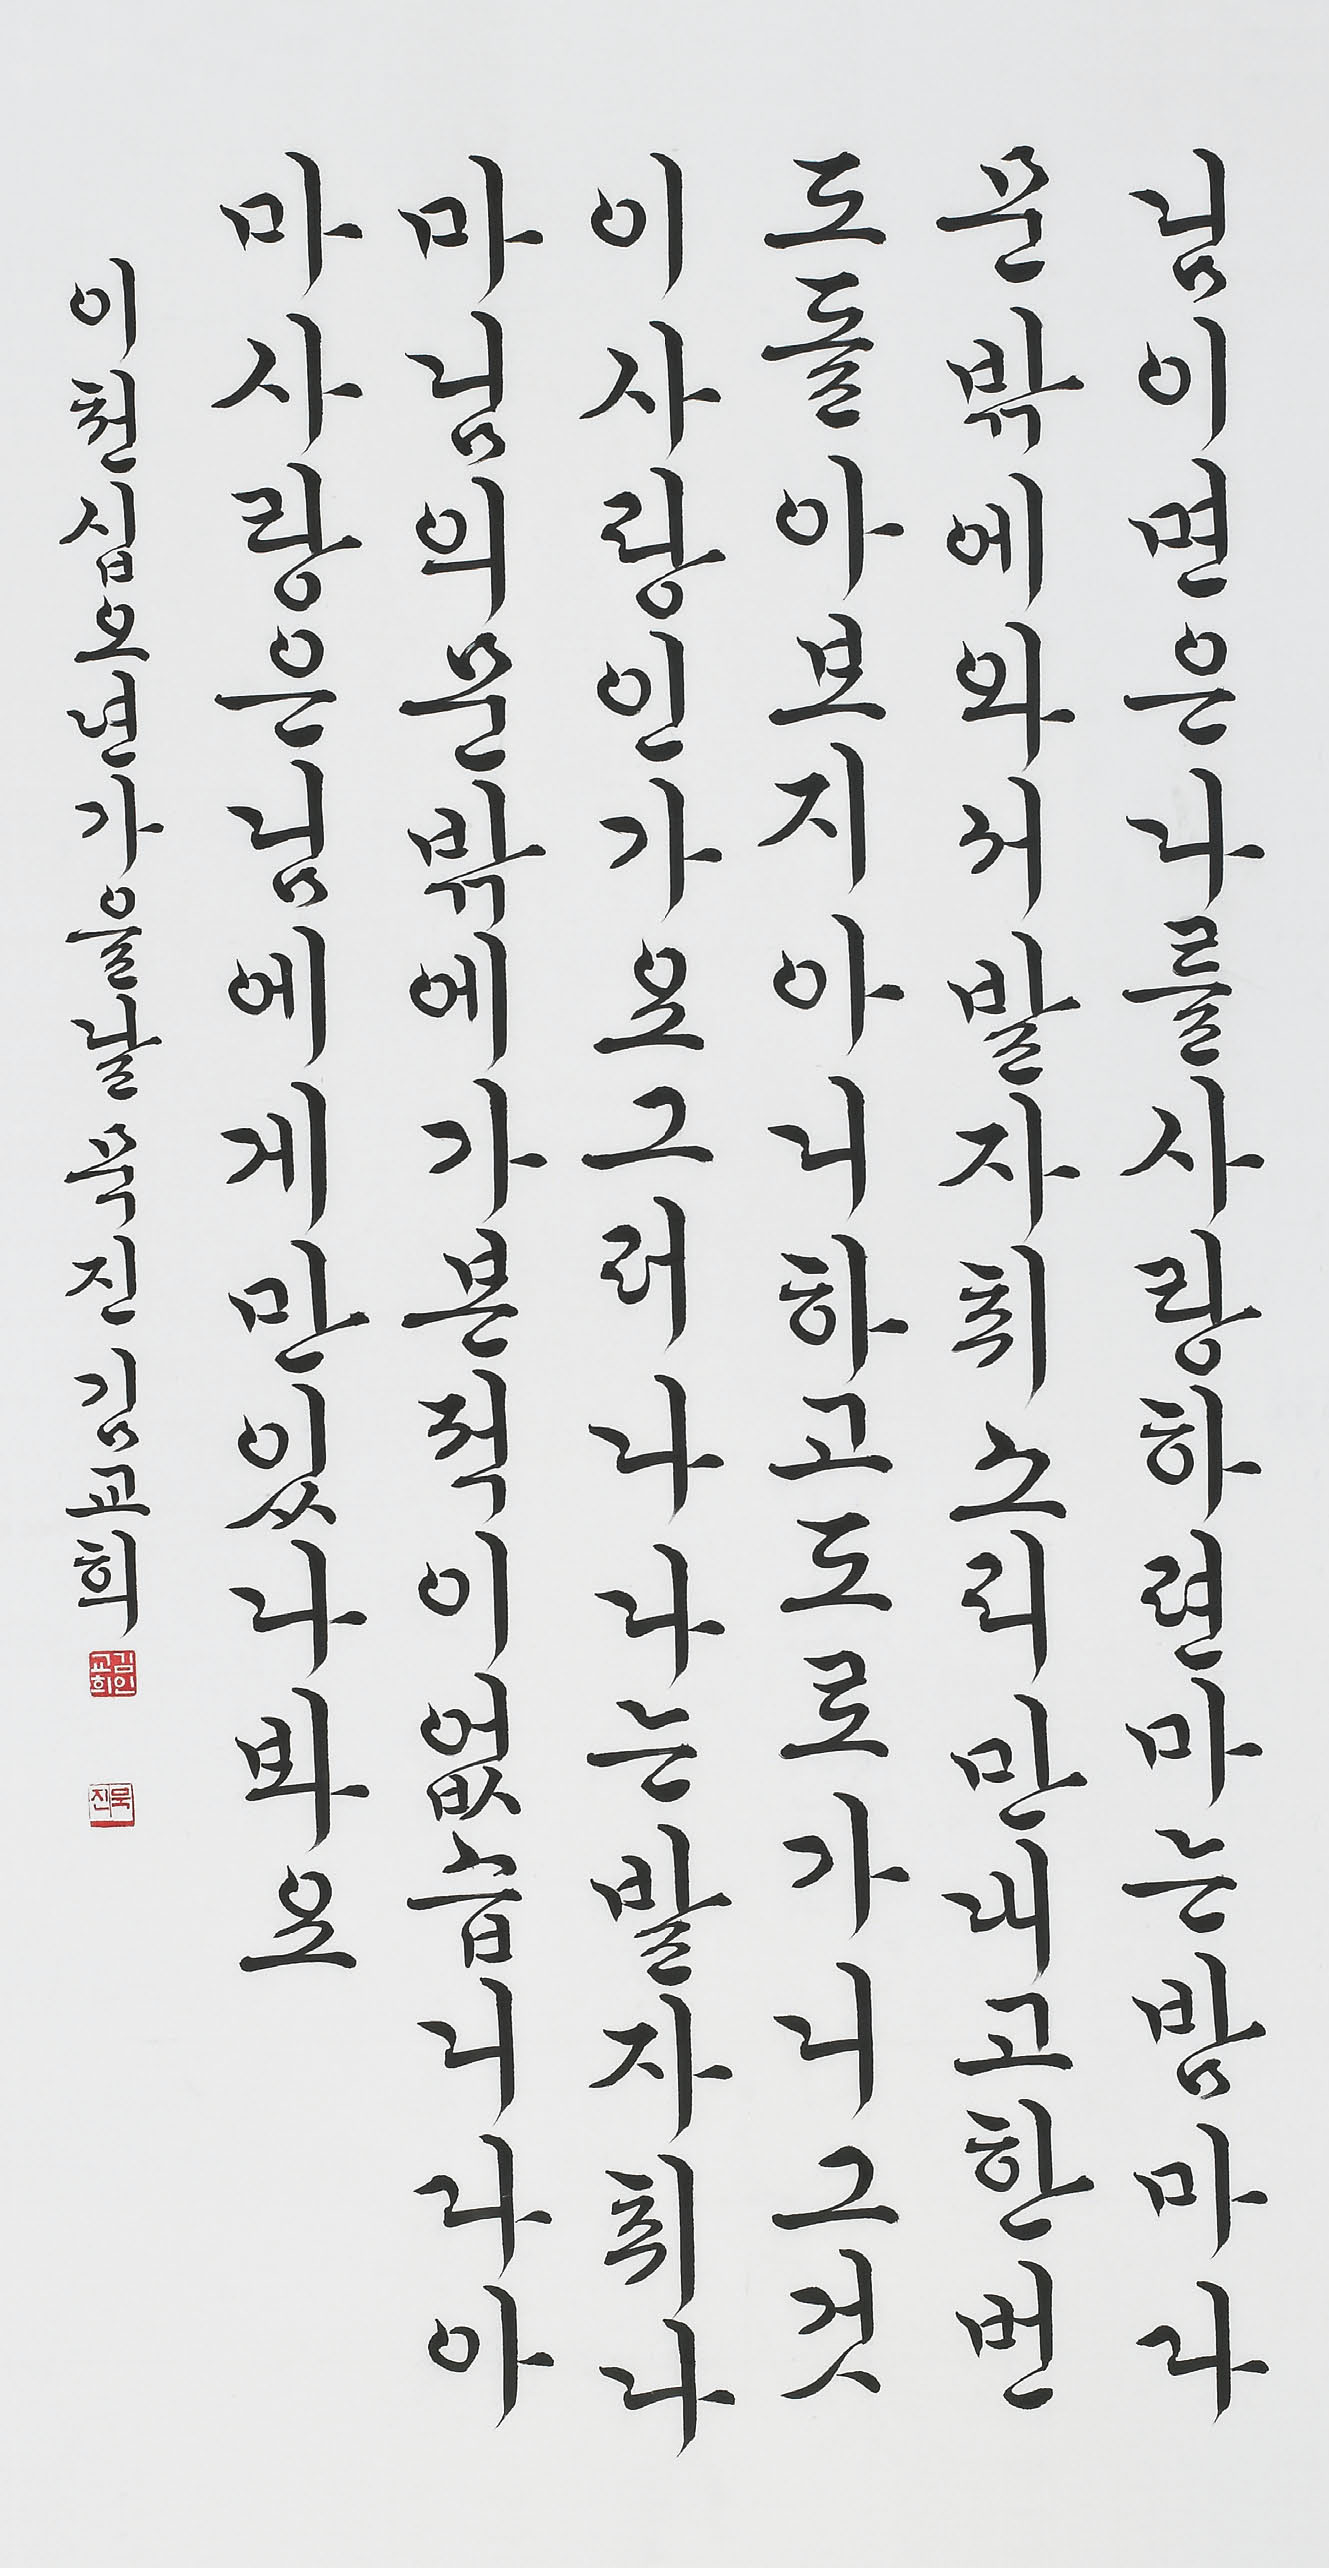 님이면은나를사랑하련마는밤마다
문밖에와서발자취소리만내고한번
도돌아보지아니하고도로가니그것
이사랑인가요그러나나는발자취나
마님의문밖에가본적이없습니다아
마사랑은님에게만있나봐요
이천십오년가을날묵진김교희
김인교희
묵진